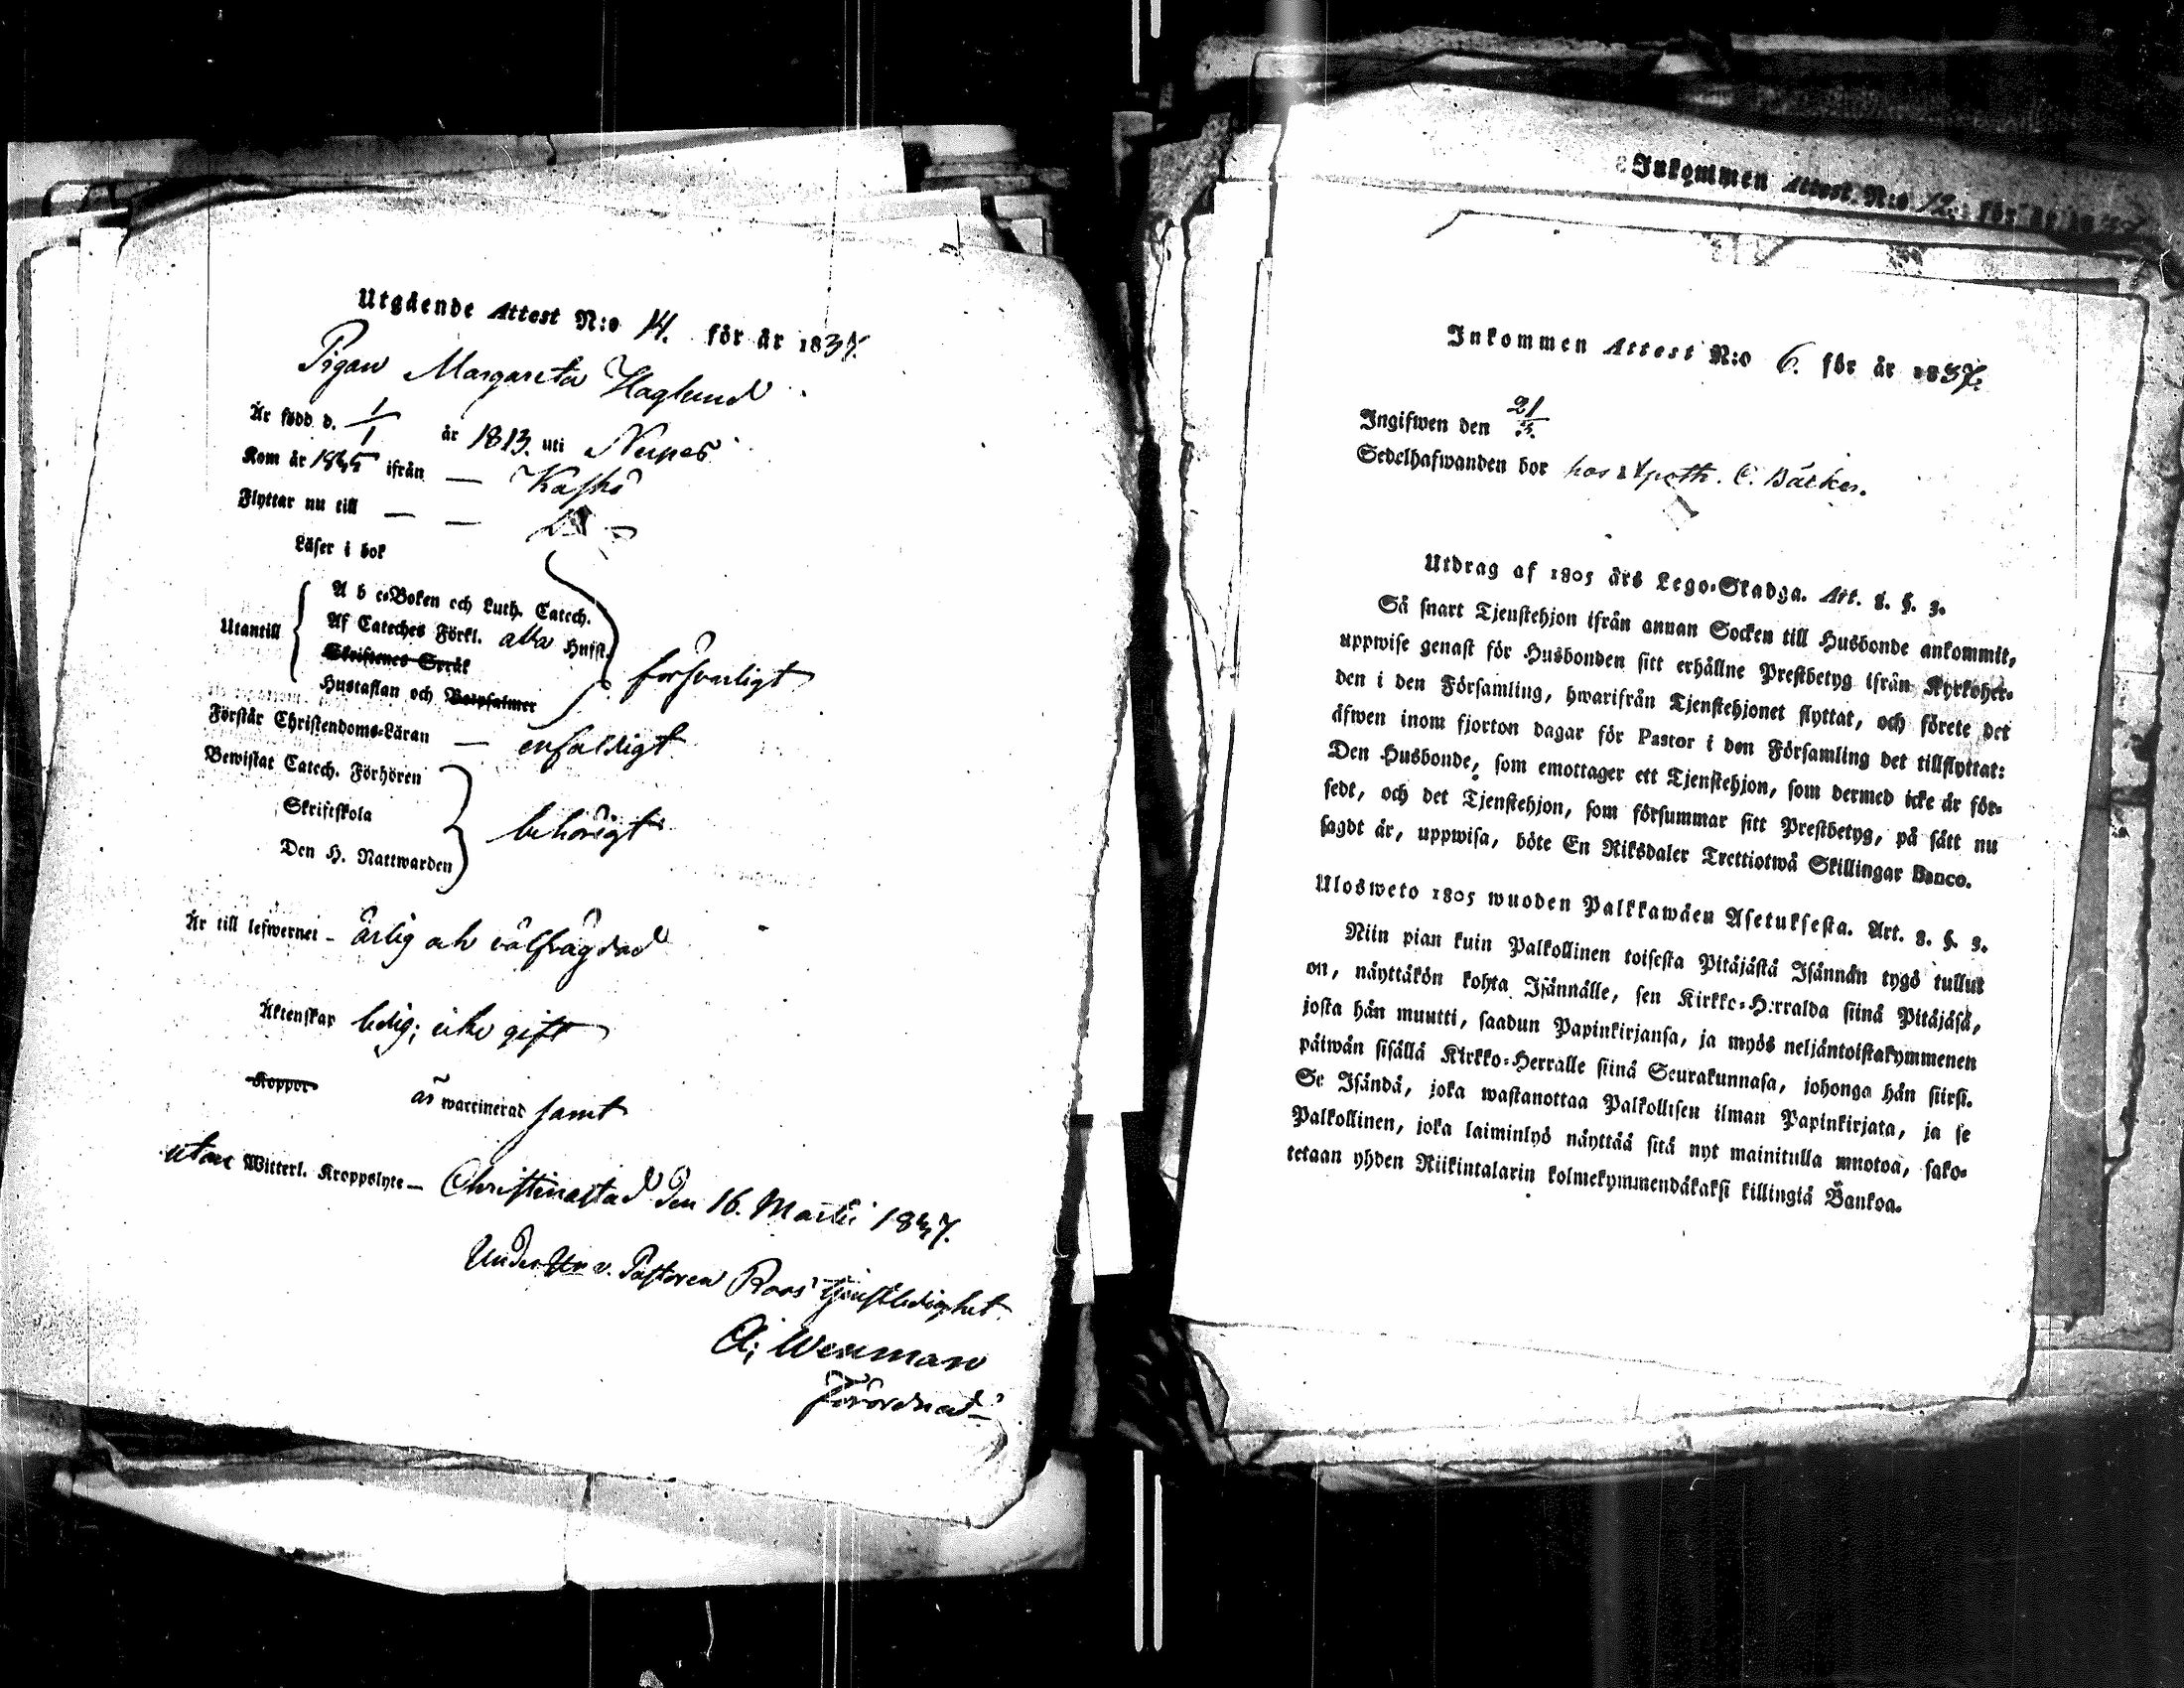 Utgående Attest N:o 14. för år 1837.
Pigan Margareta Haglund
Är född d. 1/1 år 1813. uti Nerpes
Kom år 1835 ifrån — Kaskö
Flyttar nu till — —
Läser i bok
Utantill
A b c-Boken och Luth. Catech.
Af Cateches Förkl. alla Hufst.
Skriftenes Språk
Hustaflan och Botpsalmer
försvarligt
Förstår Christendoms-Läran — enfaldigt
Bewistat Catech. Förhören
Skriftskola
Den H. Nattwarden
behörigt
Är till lefwernet - ärlig och välfrägdad
Äktenskap ledig; icke gift
Koppor är waccinerad samt
utan Witterl. Kroppslyte — Christinestad den 16. Martii 1837.
Under v. Pastoren Roos' tjenstledighet
Förordnad
Inkommen Attest N:o 12. för år 1837
Inkommen Attest N:o 6. för år 1837.
Ingifwen den 21/3.
Sedelhafwanden bor hos Apoth. C. Bäcker.
Utdrag af 1805 års Lego-Stadga. Art. 8. §. 3.
Så snart Tjenstehjon ifrån annan Socken till Husbonde ankommit,
uppwise genast för Husbonden sitt erhållne Prestbetyg ifrån Kyrkoher-
den i den Församling, hwarifrån Tjenstehjonet flyttat, och förete det
äfwen inom fjorton dagar för Pastor i den Församling det tillflyttat:
Den Husbonde, som emottager ett Tjenstehjon, som dermed icke är för-
sedt, och det Tjenstehjon, som försummar sitt Prestbetyg, på sätt nu
sagdt är, uppwisa, böte En Riksdaler Trettiotwå Skillingar Banco.
Ulosweto 1805 wuoden Palkkawäen Asetuksesta. Art. 8. §. 3.
Niin pian kuin Palkollinen toisesta Pitäjästä Isännän tygö tullut
on, näyttäkön kohta Isännälle, sen Kirkko-Herralda siinä Pitäjäsä,
josta hän muutti, saadun Papinkirjansa, ja myös neljäntoistakymmenen
päiwän sisällä Kirkko-Herralle siinä Seurakunnasa, johonga hän siirsi.
Se Isändä, joka wastanottaa Palkollisen ilman Papinkirjata, ja se
Palkollinen, joka laiminlyö näyttää sitä nyt mainitulla muotoa, sako-
tetaan yhden Riikintalarin kolmekymmendäkaksi killingiä Bankoa.